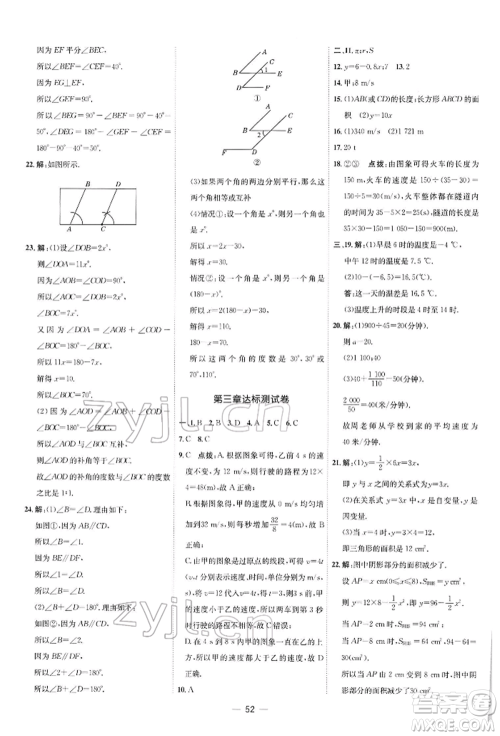 因为 EF 平分∠BEC,
所以∠BEF=∠CEF.
因为 EG⊥EF,
所以∠GEF=90°.
所以∠DEG=180°-∠GEF-
∠CEF=90°-∠CEF,∠BEG=
∠GEF-∠BEF=90°-∠BEF.
所以∠DEG=∠BEG.
22. 解:如图所示.
23. 解:(1)设∠DOB=2x°,
则∠DOA=11x°.
因为∠AOB=∠COD=90°,
所以∠AOC=∠DOB=2x°,
∠BOC=7x°.
又因为∠DOA=∠AOB+
∠COD-∠BOC=180°-
∠BOC,
所以 11x=180-7x.
解得 x=10.
所以∠BOC=70°.
(2)因为∠AOD=∠AOB+
∠COD-∠BOC=180°-
∠BOC,
所以∠AOD 与∠BOC 互补.
所以∠AOD 的补角等于∠BOC.
故∠AOD 的补角的度数与∠BOC
的度数之比是 1∶1.
24. 解:(1)∠1=∠2.理由如下:
如图①,因为 AB∥CD,
所以∠1=∠3.
因为 BE∥DF,
所以∠2=∠3.
所以∠1=∠2.
(2)∠1+∠2=180°.理由如下:
如图②,因为 AB∥CD,
所以∠1=∠3.
因为 BE∥DF,
所以∠2+∠3=180°.
所以∠1+∠2=180°.
①
②
(3)如果两个角的两边分别平行,那
么这两个角相等或互补
(4)情况①:设两个角的度数是 x°,
所以 x=2x-30.
解得 x=30.
情况②:设一个角的度数是 x°,则
另一个角的度数是(180-x)°.
所以(180-x)=2x-30.
解得 x=70.
所以(180-x)°=110°.
所以这两个角的度数为 30°,30°或
70°,110°.
第三章达标测试卷
7. C 8. C
9. C 点拨:A.由图象可得,乙前 4 s 的速
度不变,为 12 m/s,则行驶的路程为 12×
4=48(m),故A正确;
B.根据图象得,甲的速度从 0 均匀增
加到32 m/s,则每秒增加 32/8=4(m/s),故 B
正确;
C.由甲的图象是过原点的线段,可得
12,则甲、乙两车到第 3 s 时行驶的
路程不相等,故C错误;
D.在 4 s 至 8 s 内甲的速度都大于乙
的速度,故 D 正确.
10. A
二、11. g;r,S
12. y=6-0.8x;7 13. 2
14. 甲;8 m/s
15. (1)AB(或 CD)的长度;长方形 ABCD 的面
积 (2)y=10x
16. (1)340 m/s (2)1 721 m
17. 20 t
18. ②③ 点拨:由图象可得火车的长度为
150 m,火车的速度是 150÷(35-
30)=150÷5=30(m/s),火车整
体都在隧道内的时间为
35-5-5=25(s),隧道的长度是
三、19. 解:(1)早晨 6 时和中午 12 时
(2)16-(-0.5)=16.5(℃).
答:这一天的温差是 16.5 ℃.
(3)温度上升的时段是 4 时至 14 时.
20. 解:(1)900÷45=20(米/分钟).
则 a=20.
2 000/50=40(分钟).
故周老师从学校到家的平均速度为
21. 解:(1)y=1/2×6x=3x,
即 y 与 x 之间的关系式为 y=3x.
(2)在关系式 y=3x 中,x 是自变量,
y 是因变量.
(3)当 x=4 时,y=3×4=12,
即三角形的面积为 12 cm².
22. 解:图中阴影部分的面积减少了.
当 AP=2 cm 时,S阴影=94 cm²;
当 AP=8 cm 时,S阴影=64 cm².
所以当 AP 由 2 cm 变到 8 cm 时,图
中阴影部分的面积减少了 30 cm².
52
zyjl.cn
zyjl.cn
答案圈